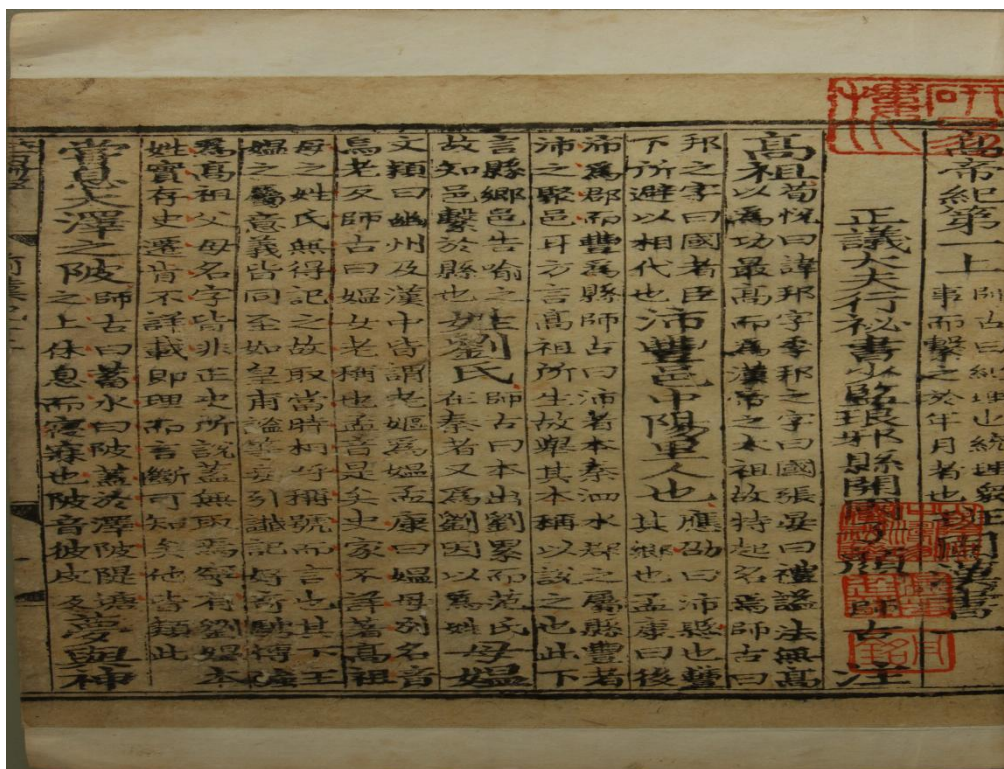 高帝紀第一上師古曰紀理也統理衆事而繫之於年月者也班固漢書
正議大夫行祕書少監琅邪縣開國子顏師古注
高祖荀悅曰諱邦字季邦之字曰國張晏曰禮謚法無高以為功最高而為漢帝之太祖故特起名焉師古曰
邦之字曰國者臣下所避以相代也沛豐邑中陽里人也應劭曰沛縣也豐其鄉也孟康曰後
沛為郡而豐為縣師古曰沛者本秦泗水郡之屬縣豐者沛之聚邑耳方言高祖所生故舉其本稱以說之也此下
言縣鄉邑告喻之故知邑繫於縣也姓劉氏師古曰本出劉累而范氏在秦者又為劉因以為姓母媼
文穎曰幽州及漢中皆謂老嫗為媼孟康曰媼母別名音烏老反師古曰媼女老稱也孟音是矣史家不詳著高祖
母之姓氏無得記之故取當時相呼稱號而言也其下王媼之屬意義皆同至如皇甫謐等妄引讖記好奇騁博强
為高祖父母名字皆非正史所說蓋無取焉寧有劉媼本姓實存史遷肯不詳載即理而言斷可知矣他皆類此
嘗息大澤之陂師古曰蓄水曰陂蓋於澤陂隄塘之上休息而寢寐也陂音彼皮反夢與神